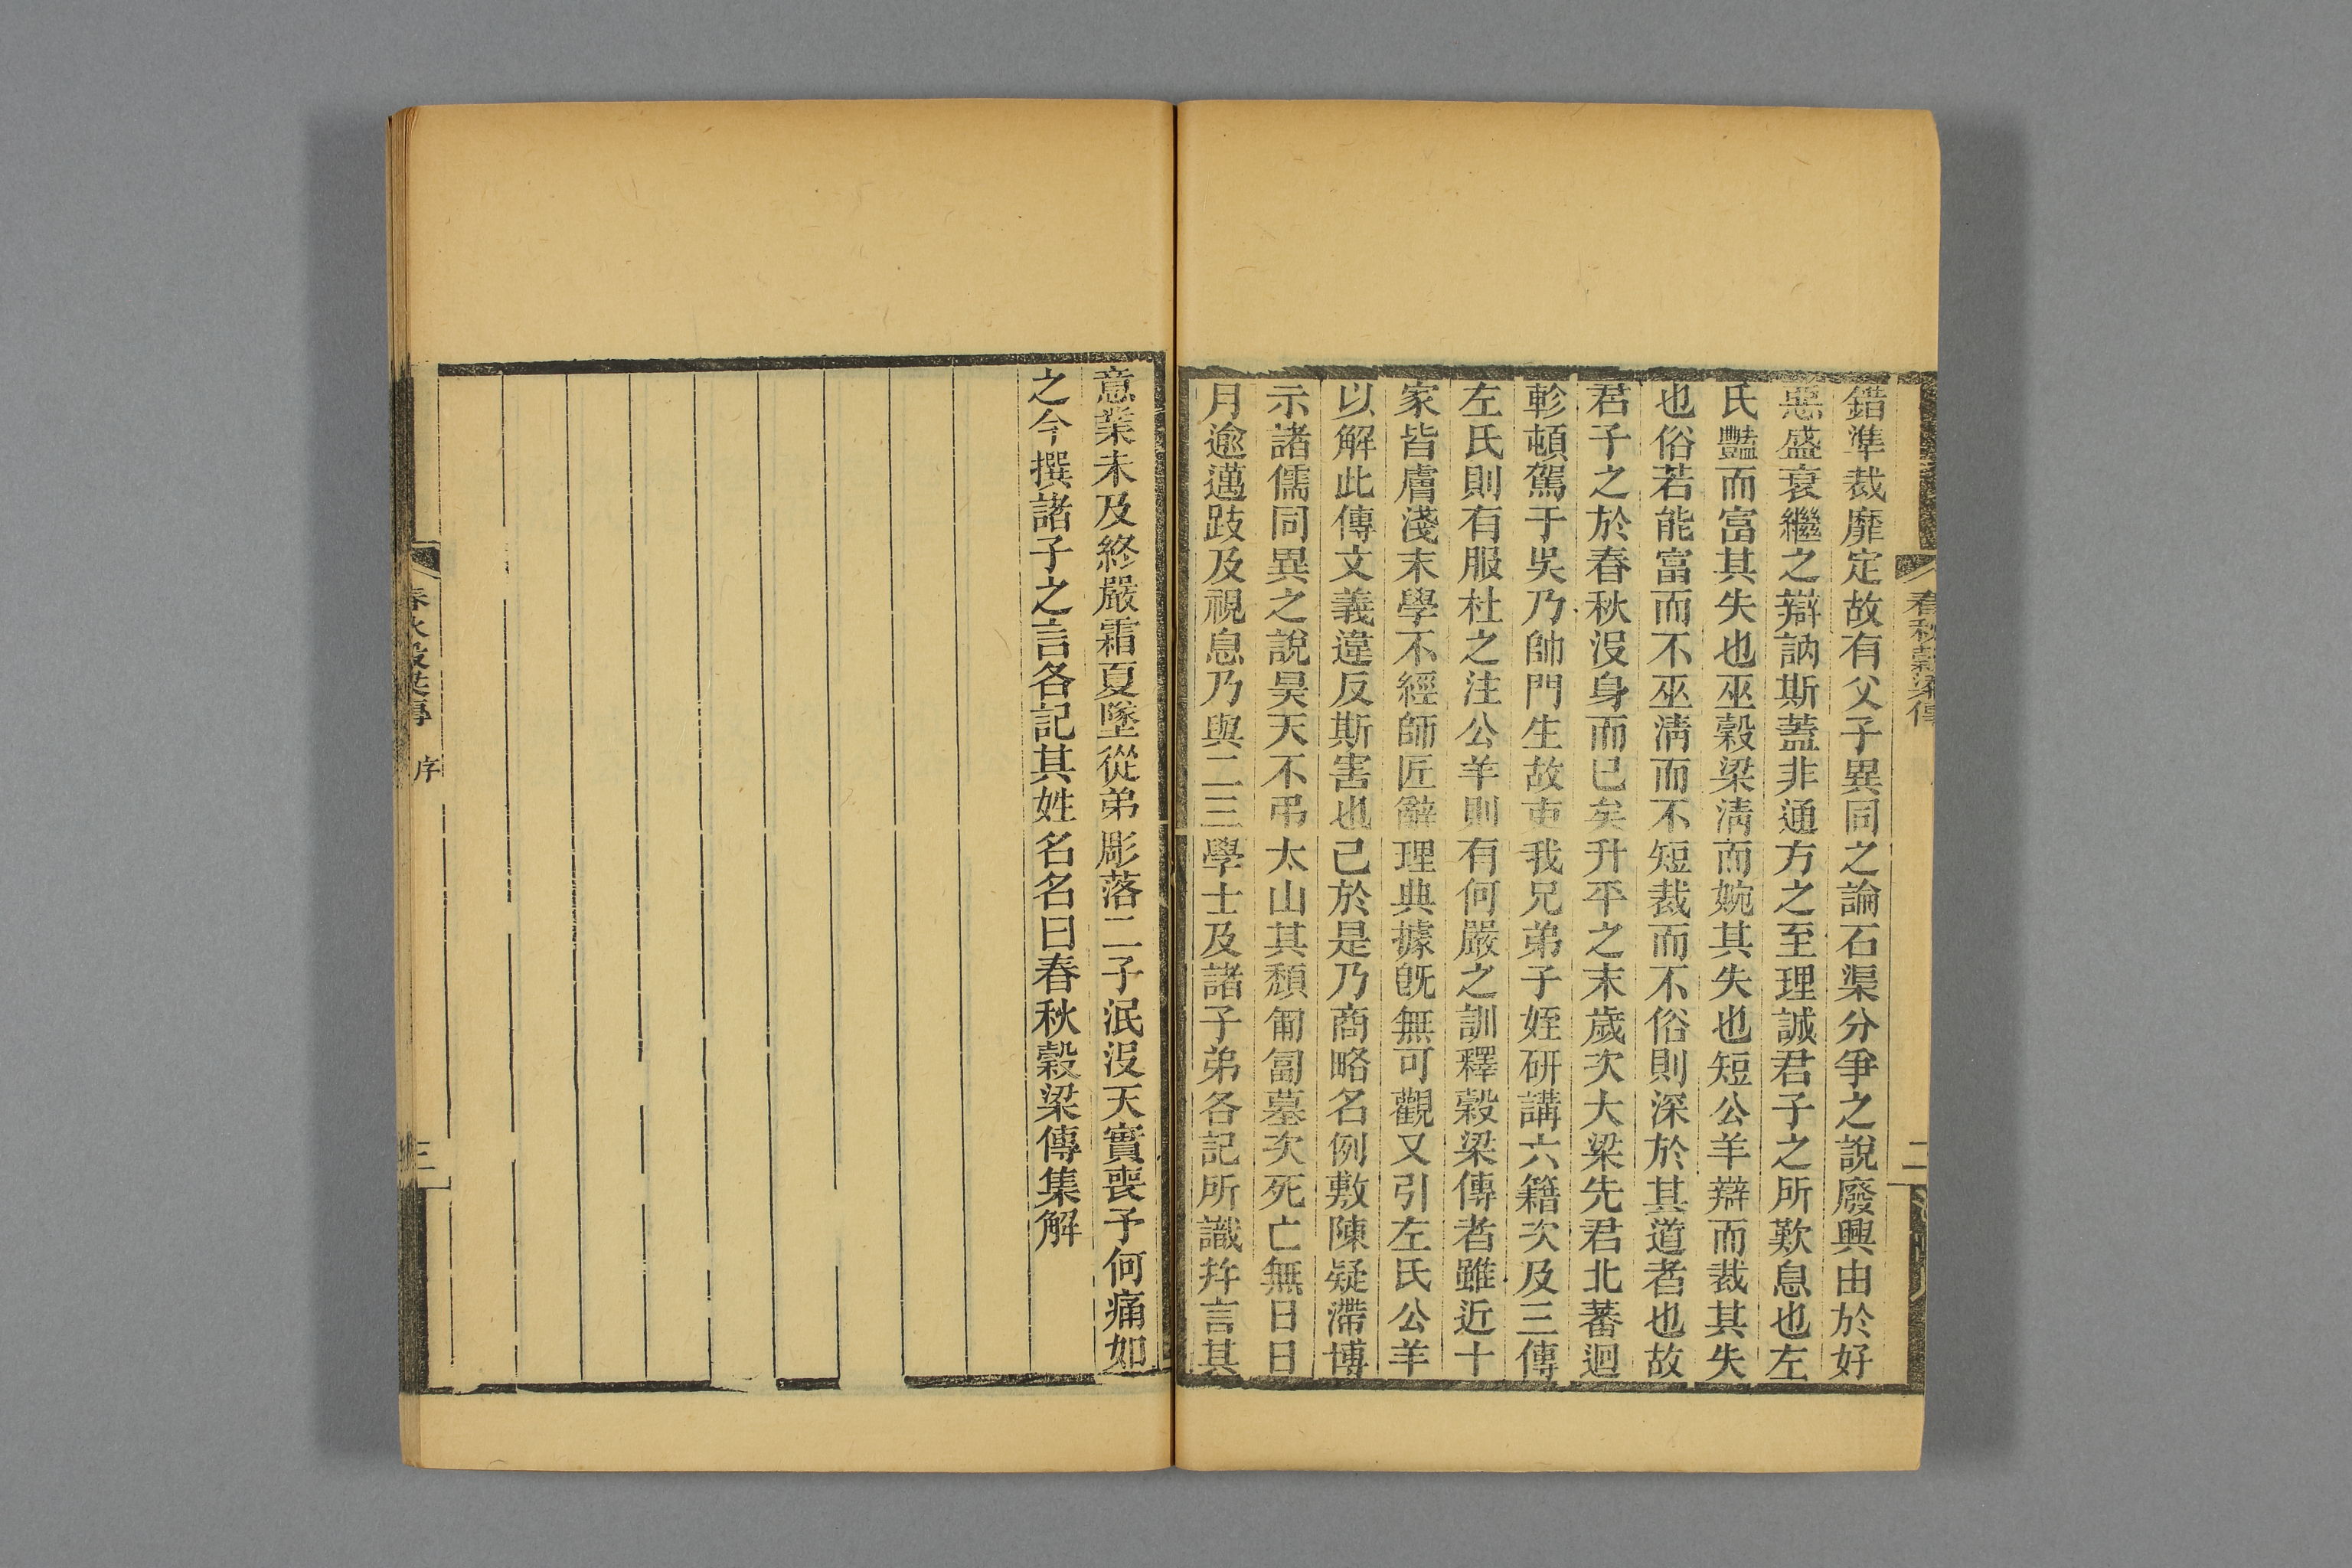 春秋穀梁傳
二
錯準裁靡定故有父子異同之論石渠分爭之說廢興由於好
惡盛衰繼之辯訥斯蓋非通方之至理誠君子之所歎息也左
氏豔而富其失也巫穀梁淸而婉其失也短公羊辯而裁其失
也俗若能富而不巫淸而不短裁而不俗則深於其道者也故
君子之於春秋沒身而已矣升平之末歲次大梁先君北蕃迴
軫頓駕于吳乃帥門生故吏我兄弟子姪研講六籍次及三傳
左氏則有服杜之注公羊則有何嚴之訓釋穀梁傳者雖近十
家皆膚淺末學不經師匠辭理典據旣無可觀又引左氏公羊
以解此傳文義違反斯害也已於是乃商略名例敷陳疑滯博
示諸儒同異之說昊天不弔太山其頹匍匐墓次死亡無日日
月逾邁跂及視息乃與二三學士及諸子弟各記所識幷言其
意業未及終嚴霜夏墜從弟彫落二子泯沒天實喪予何痛如
之今撰諸子之言各記其姓名名曰春秋穀梁傳集解
春秋穀梁傳 序
三